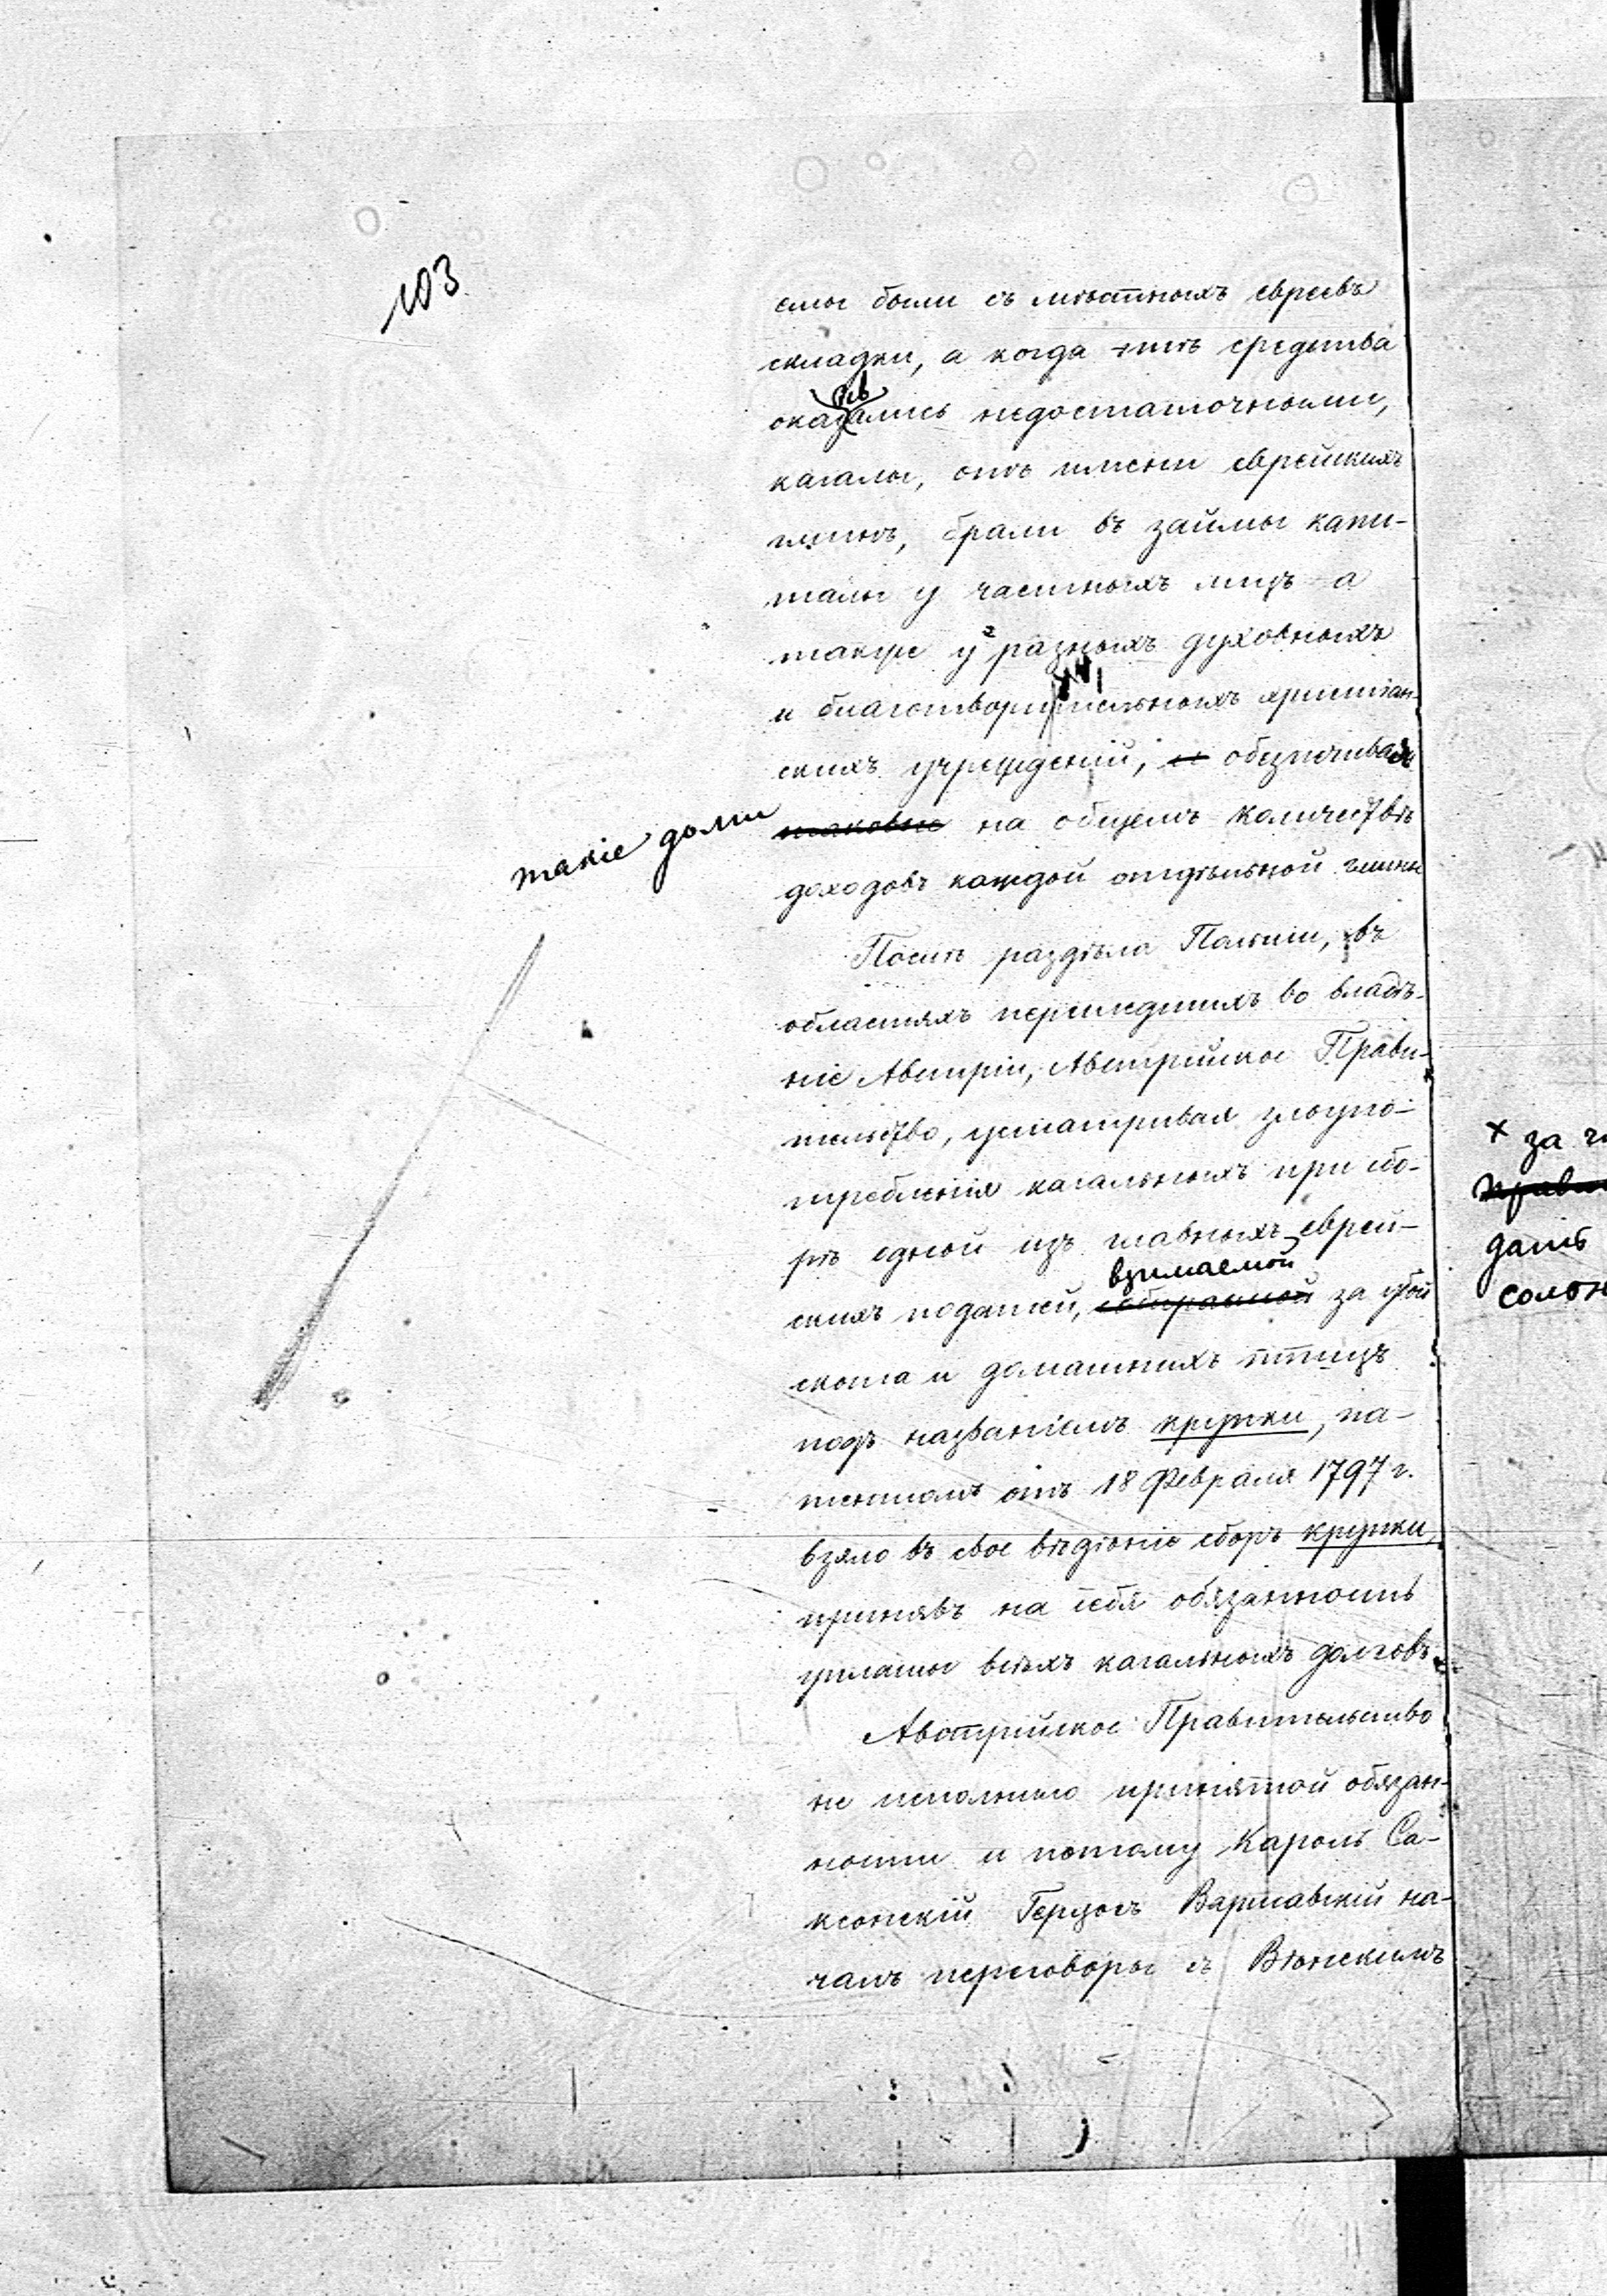 103
емы были съ мѣстныхъ евреевъ
складки, а когда эти средства
оказались недостаточными,
кагалы, отъ имени еврейскихъ
гминъ, брали въ займы капи-
талы у частныхъ лицъ а
также у разныхъ духовныхъ
и благотворительныхъ христіан-
скихъ учрежденій, и обезпечивая
таковые на общемъ количествѣ
такіе долги
доходовъ каждой отдѣльной гмины
Послѣ раздѣла Польши, въ
областяхъ перешедшихъ во владѣ-
ніе Австріи, Австрійское Прави-
тельство, усматривая злоупо-
требленія кагальныхъ при сбо-
рѣ одной изъ главныхъ еврей-
взимаемой
скихъ податей, собираемой за убой
скота и домашнихъ птицъ
подъ названіемъ крупки, па-
тентомъ отъ 18 Февраля 1797 г.
взяло въ свое вѣдѣніе сборъ крупки,
принявъ на себя обязанность
уплаты всѣхъ кагальныхъ долговъ.
Австрійское Правительство
не исполнило принятой обязан-
ности и потому Король Са-
ксонскій Герцогъ Варшавскій на-
чалъ переговоры съ Вѣнскимъ
× за
дать